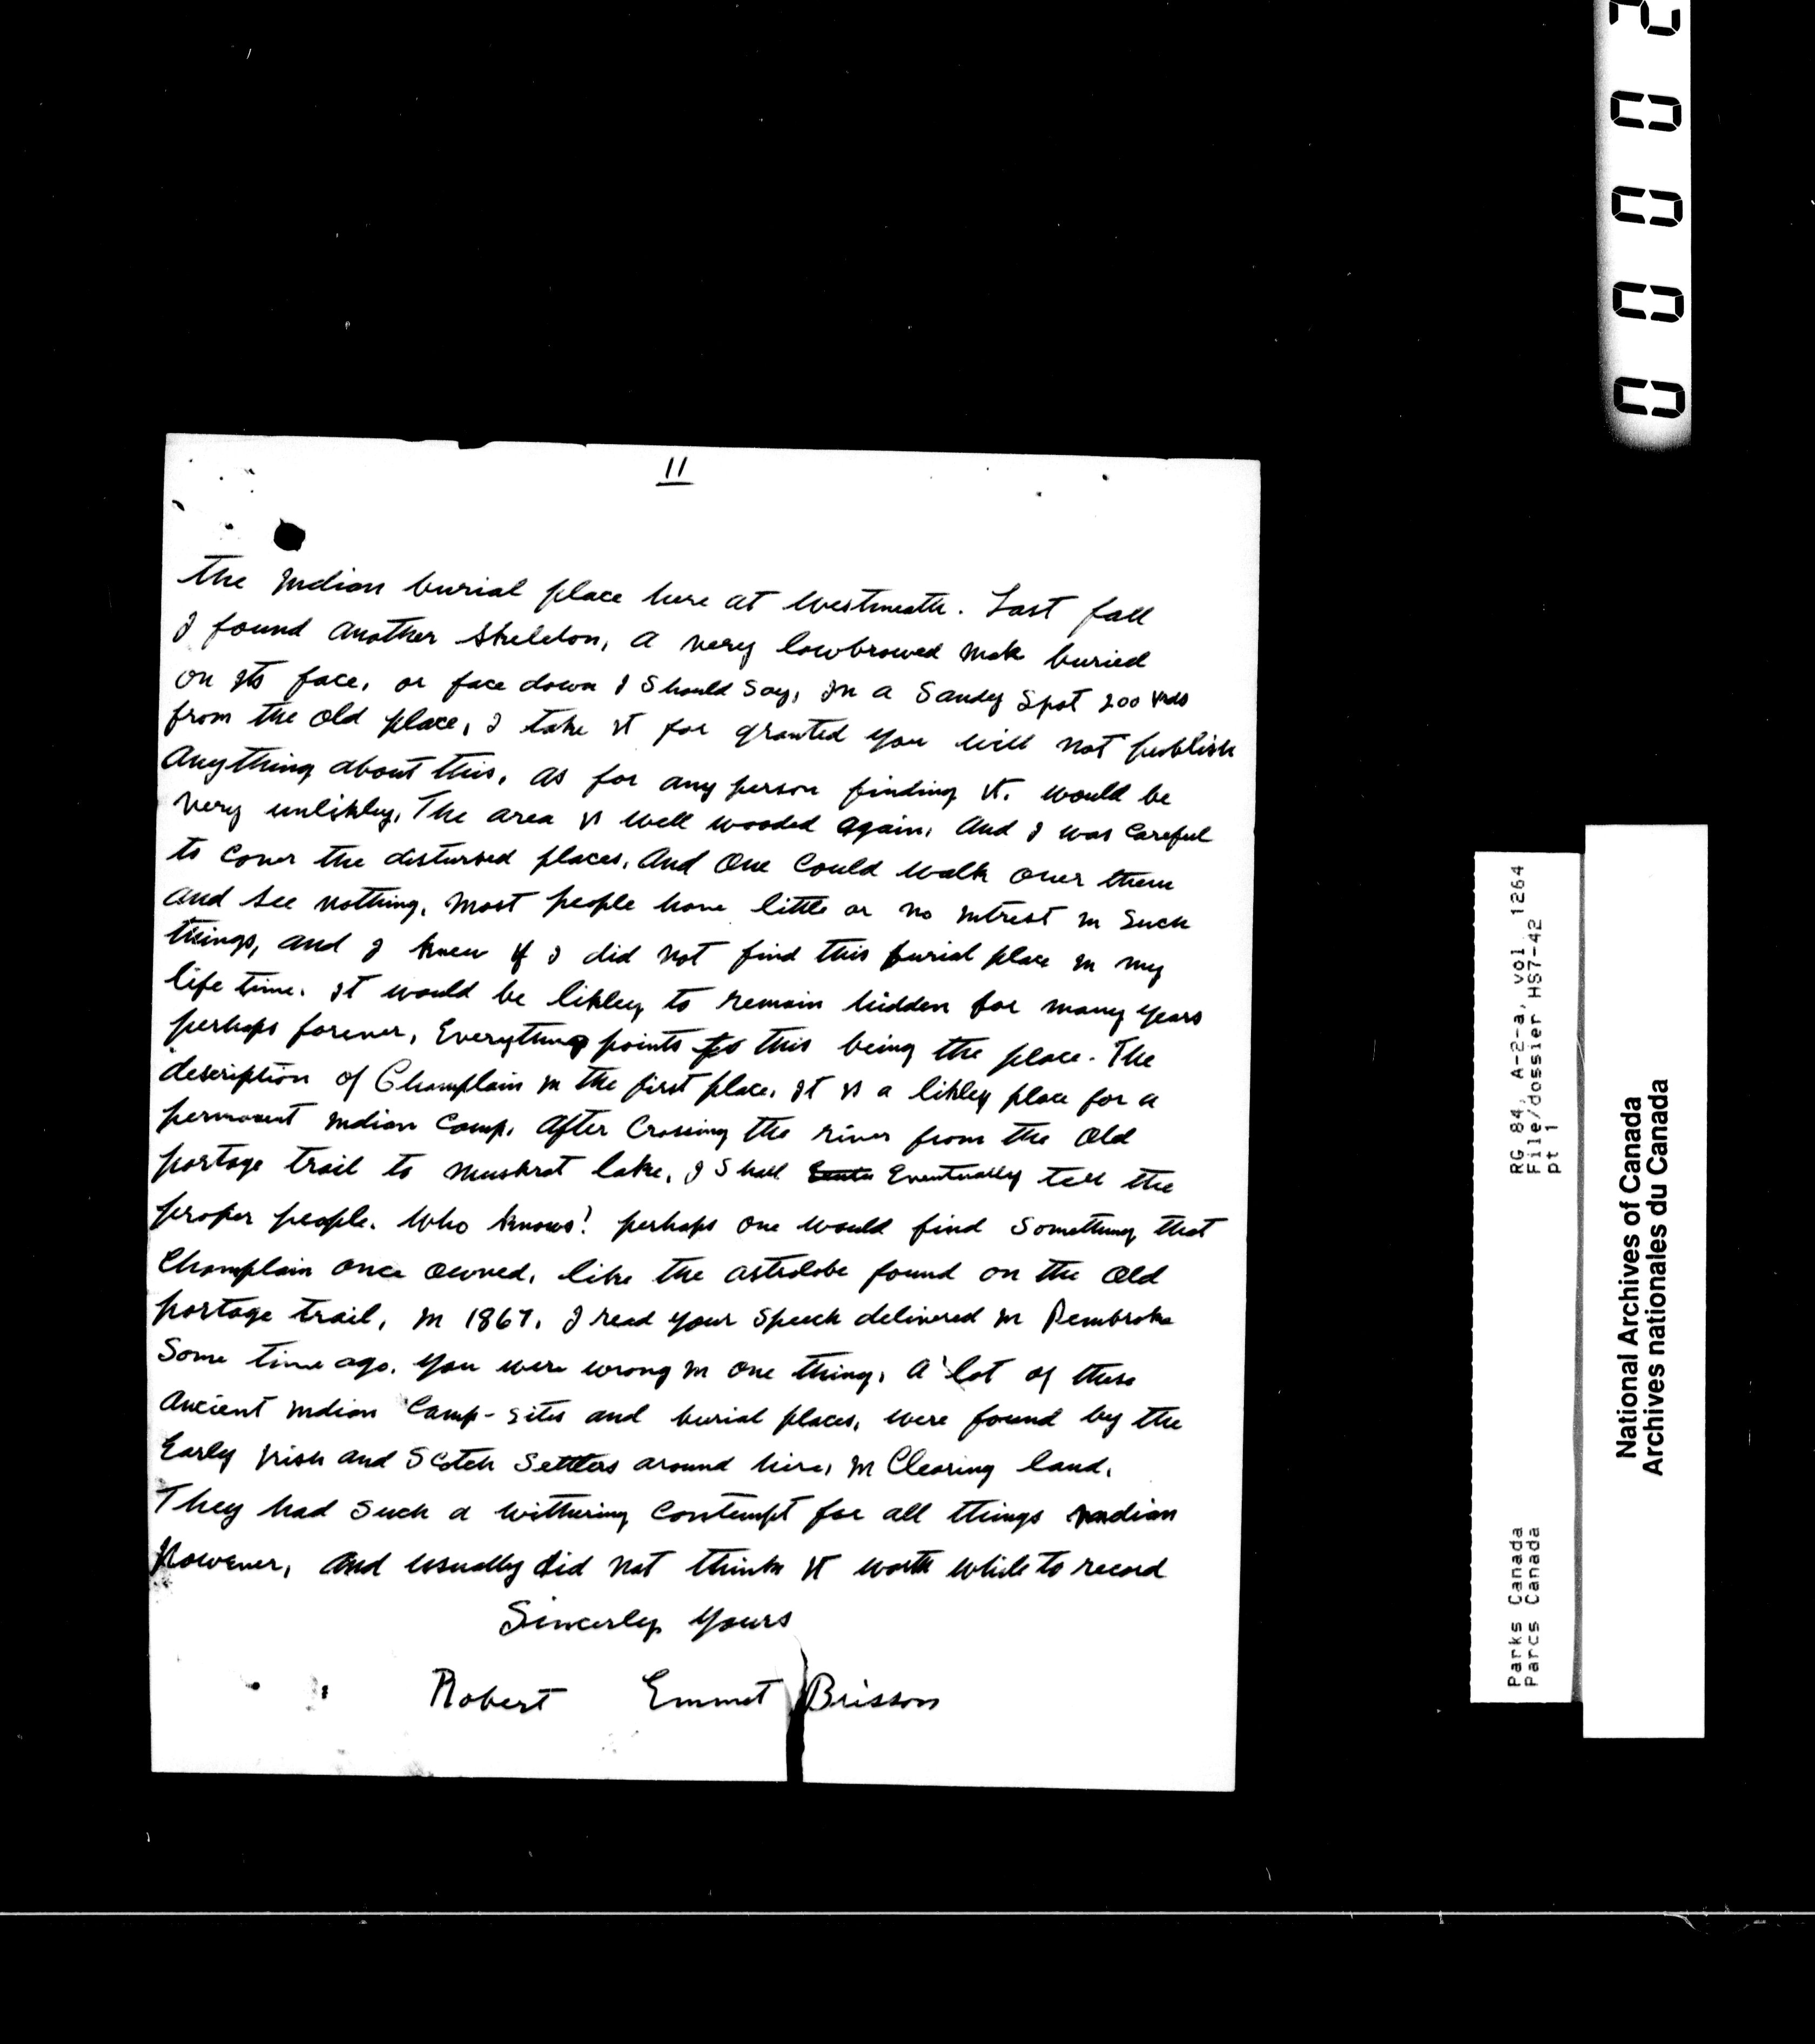 11
The Indian burial place here at Westmeath. Last fall
I found another Skeleton, a very lowbrowed male buried
on its face, or face down I Should Say, In a Sandy Spot 200 yrds
from the old place, I take it for granted you will not publish
Anything about this, as for any person finding it. would be
very unlikley, The area is well wooded again, And I was Careful
to Cover the disturbed places, And One Could walk over them
and See nothing, most people have little or no intrest in Such
things, and I knew if I did not find this burial place in my
life time. It would be likley to remain hidden for many years
perhaps forever, Everything points to this being the place. The
description of Champlain in the first place, It is a likley place for a
permanent Indian Camp, After Crossing the river from the Old
portage trail to Muskrat lake, I Shall Eventually tell the
proper people. Who knows! perhaps one would find Something that
Champlain once owned, like the astrolobe found on the Old
portage trail, in 1867, I read your Speech delivered in Pembroke
Some time ago. you were wrong in one thing, A lot of these
Ancient Indian Camp-Sites and burial places, were found by the
Early Irish and Scotch Settlers around here, in Clearing land,
They had Such a withering Contempt for all things Indian
However, And usually did not think it worth while to record
Sincerley yours
Robert Emmet Brisson
20000
RG 84, A-2-a, vol. 1264
File/dossier HS7-42
pt 1
Parks Canada
Parcs Canada
National Archives of Canada
Archives nationales du Canada